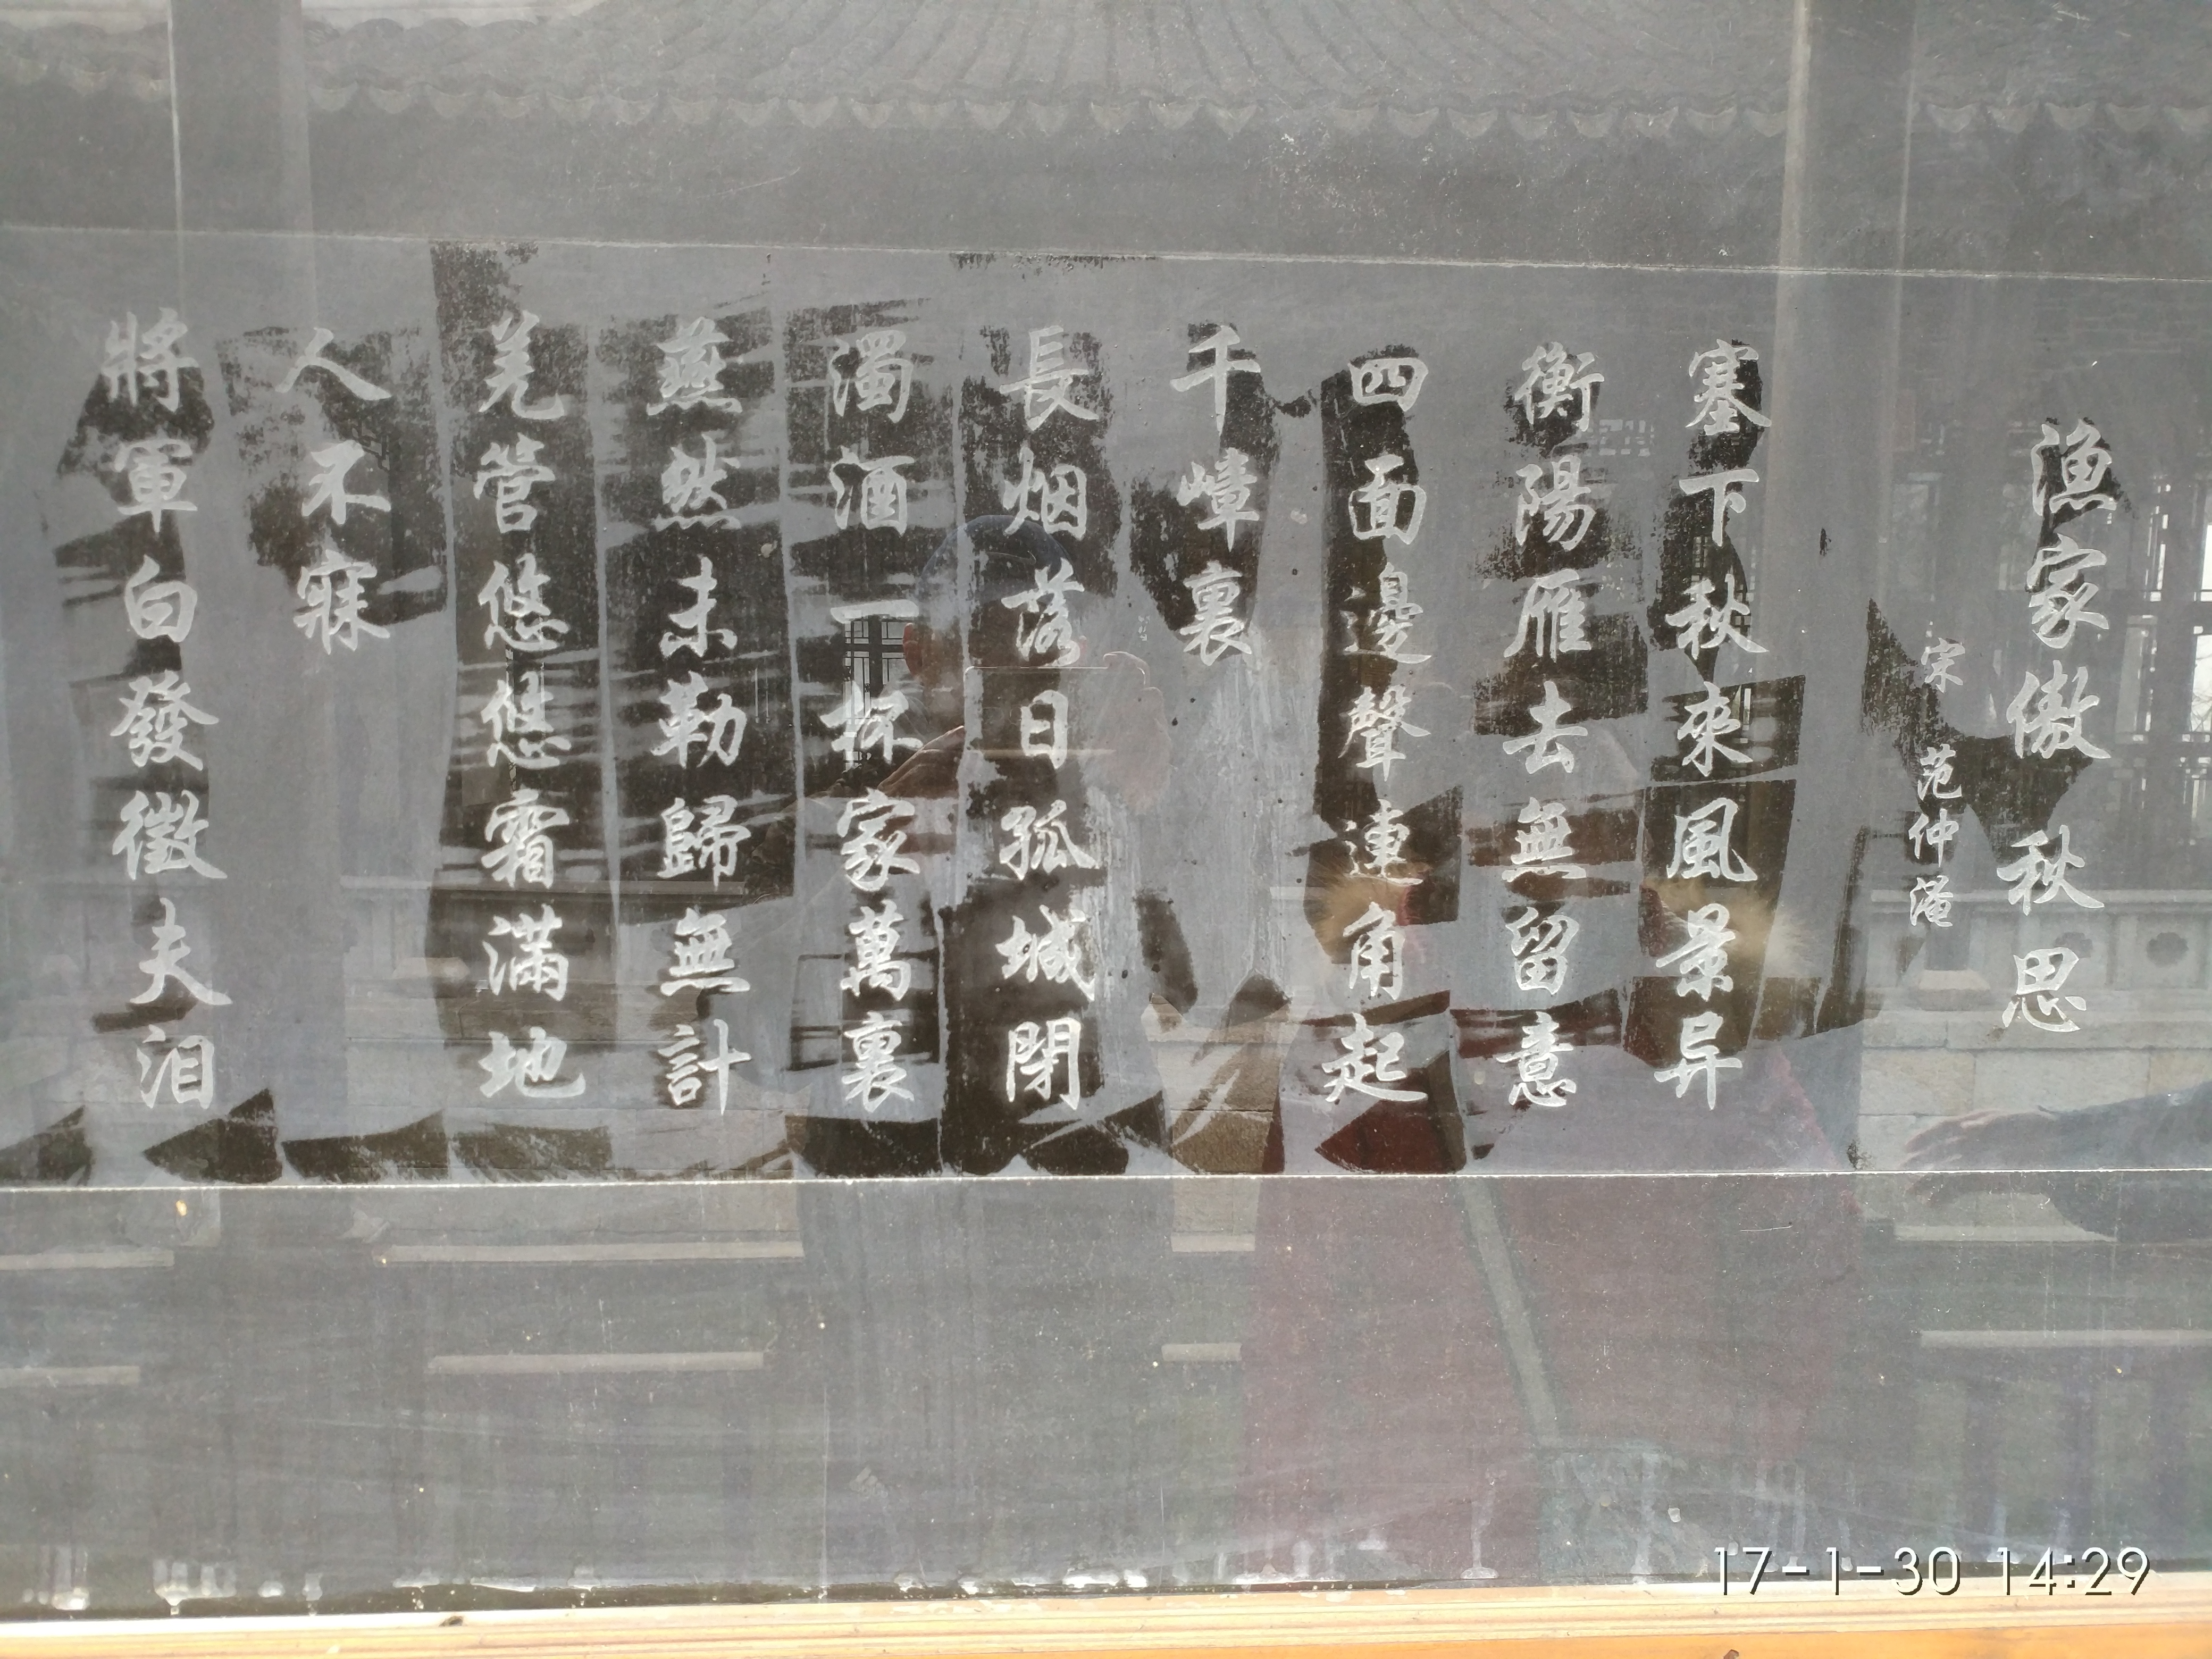 漁家傲 秋思
宋 范仲淹
塞下秋來風景异
衡陽雁去無留意
四面邊聲連角起
千嶂裏
長烟落日孤城閉
濁酒一杯家萬裏
燕然未勒歸無計
羌管悠悠霜滿地
人不寐
將軍白發徵夫泪
17-1-30 14:29